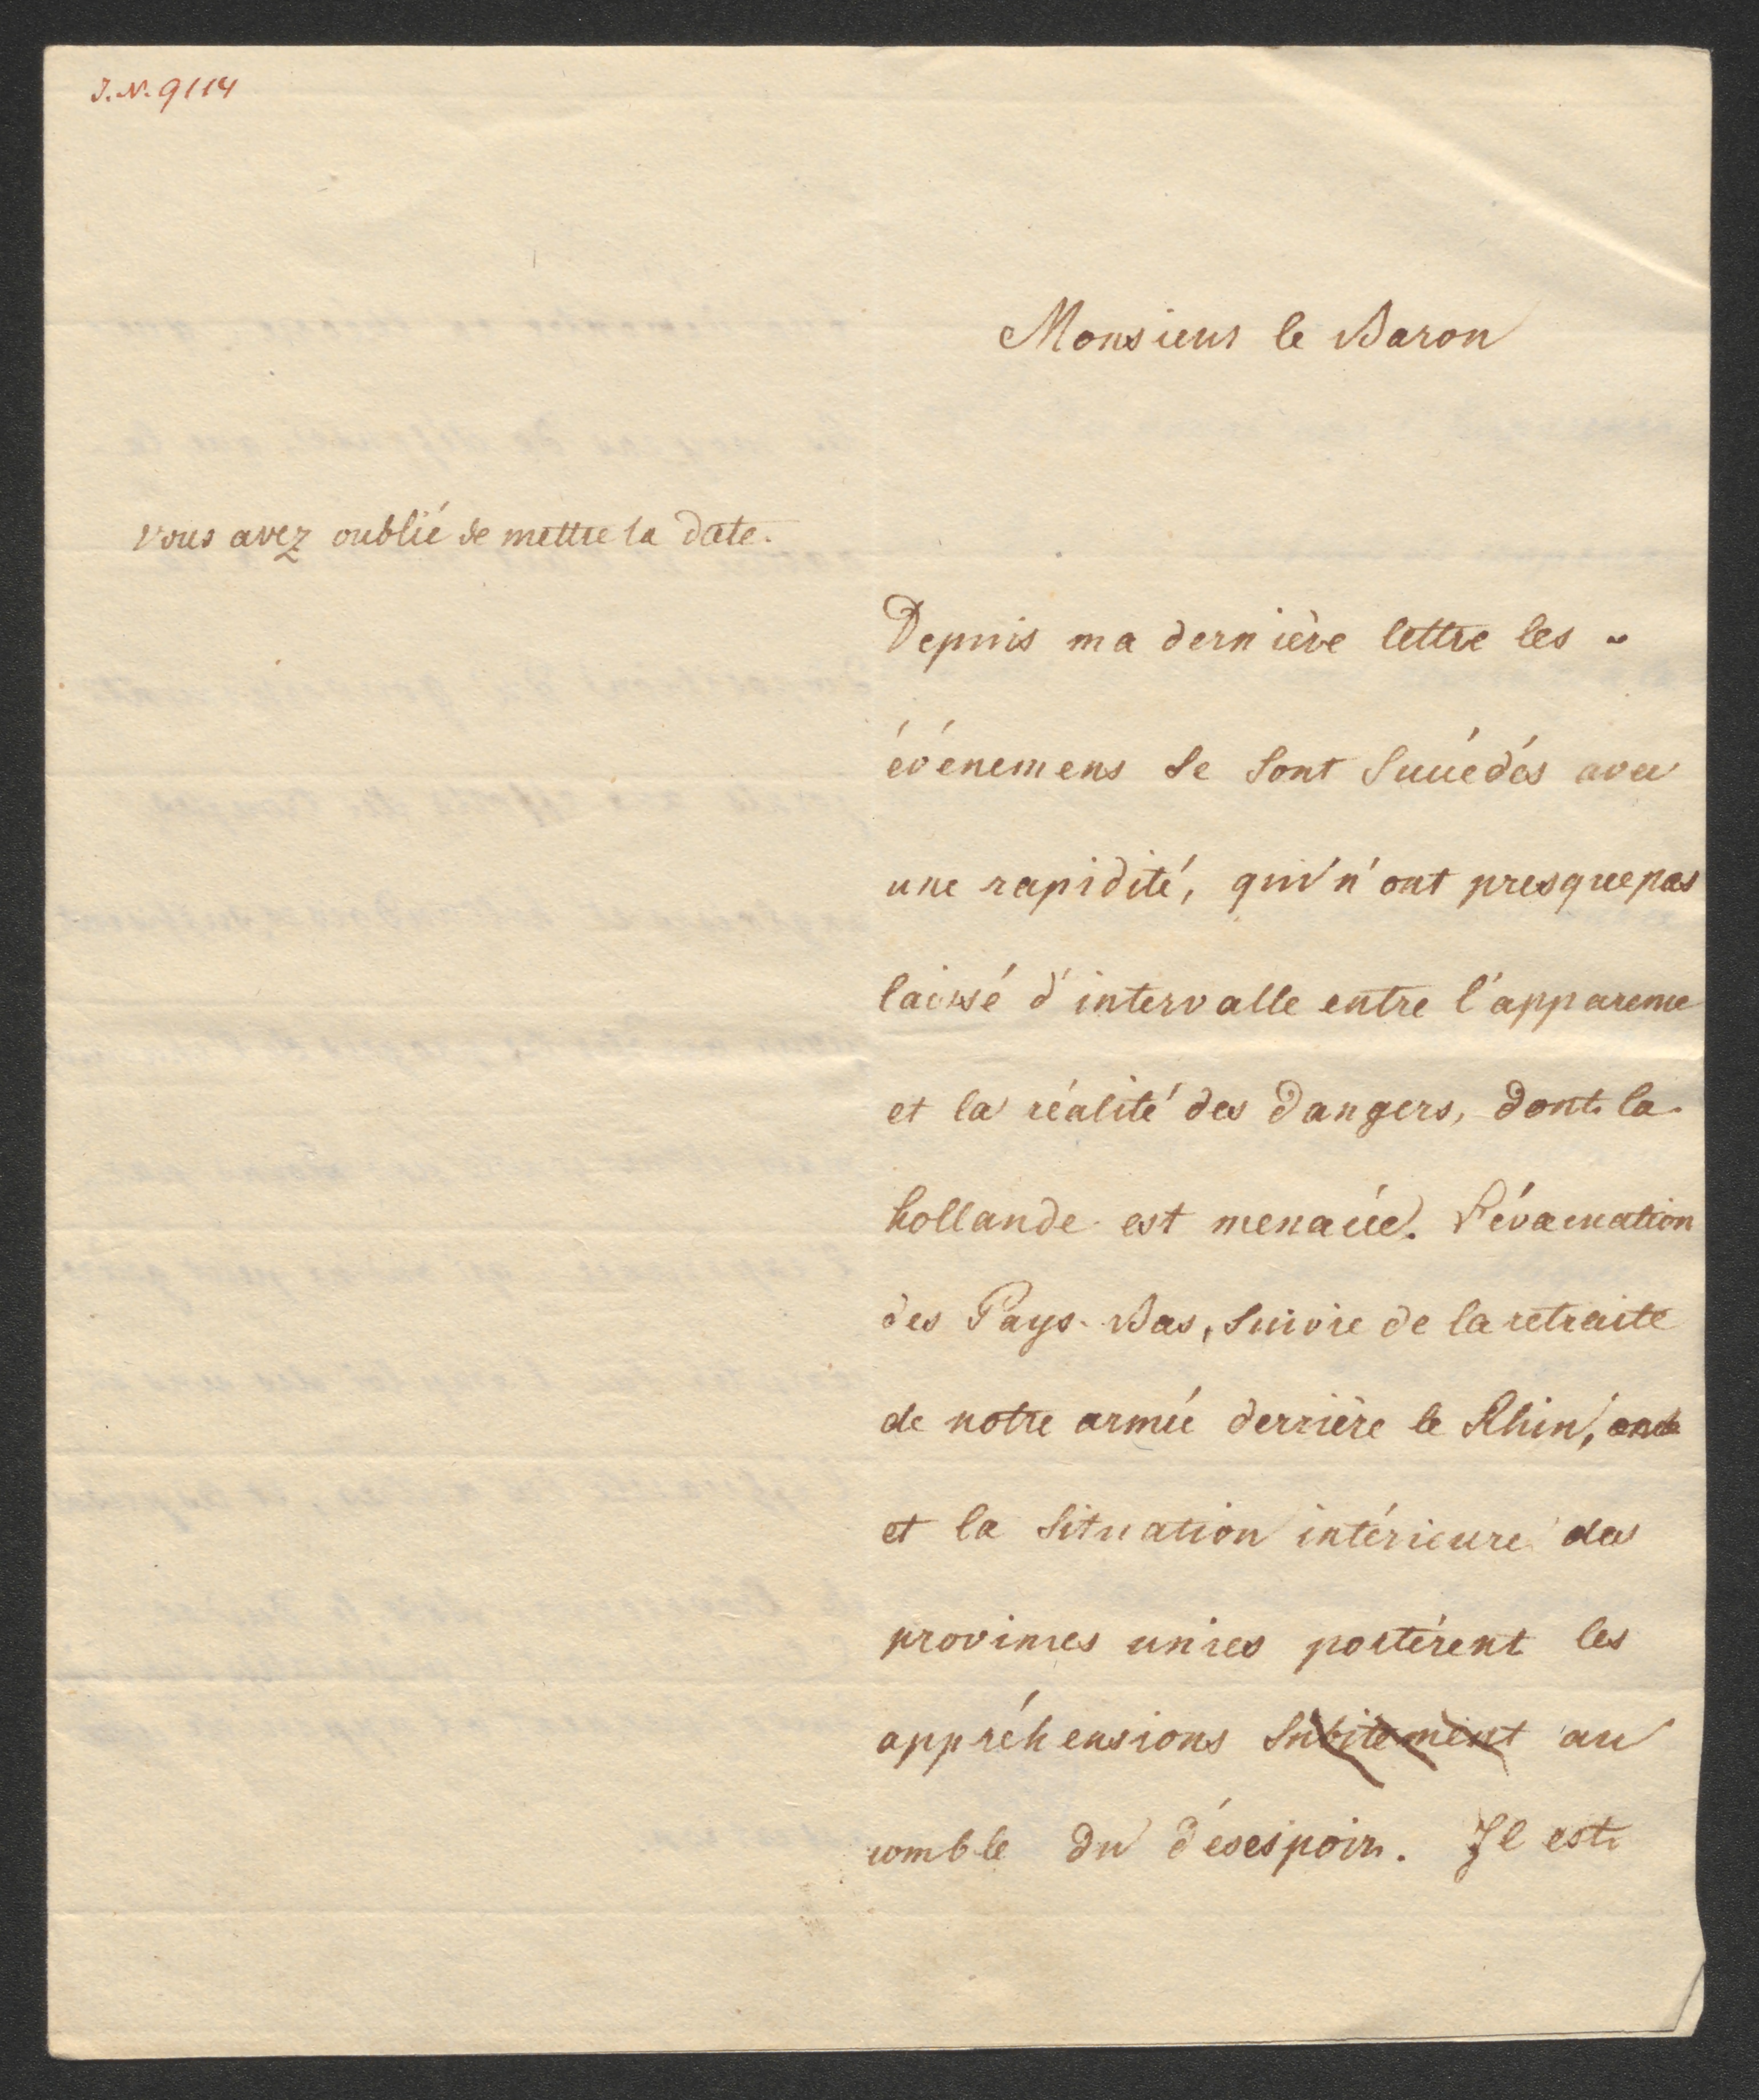 J.N. 9114
Monsieur le Baron
vous avez oublié de mettre la date.
Depuis ma dernière lettre les
événemens se sont succédés avec
une rapidité, qui n'ont presque pas
laissé d'intervalle entre l'apparence
et la réalité des dangers, dont la
hollande est menacée. L'évacuation
des Pays-Bas, suivie de la retraite
de notre armée derrière le Rhin,
et la situation intérieure des
provinces unies portèrent les
appréhensions subitement au
comble du désespoir. Il est